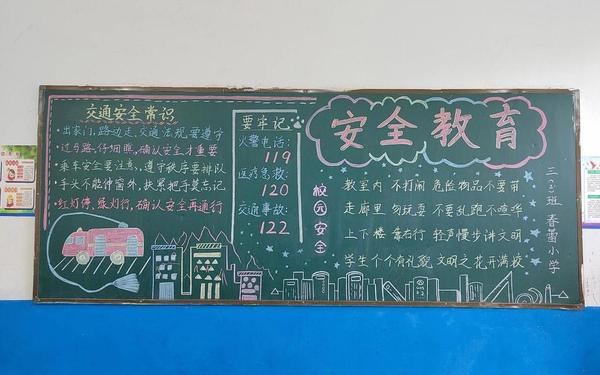 交通安全常识
·出家门,路边走,交通法规要遵守
·过马路,仔细瞧,确认安全才重要
·乘车安全要注意,遵守秩序要排队
·手头不能伸窗外,扶紧把手莫忘记
·红灯停,绿灯行,确认安全再通行
要牢记
火警电话:
119
医疗急救:
120
交通事故:
122
校园安全
安全教育
教室内 不打闹 危险物品不要带
走廊里 勿玩耍 不要乱跑不喧哗
上下楼 靠右行 轻声慢步讲文明
学生个个有礼貌 文明之花开满校
春蕾小学